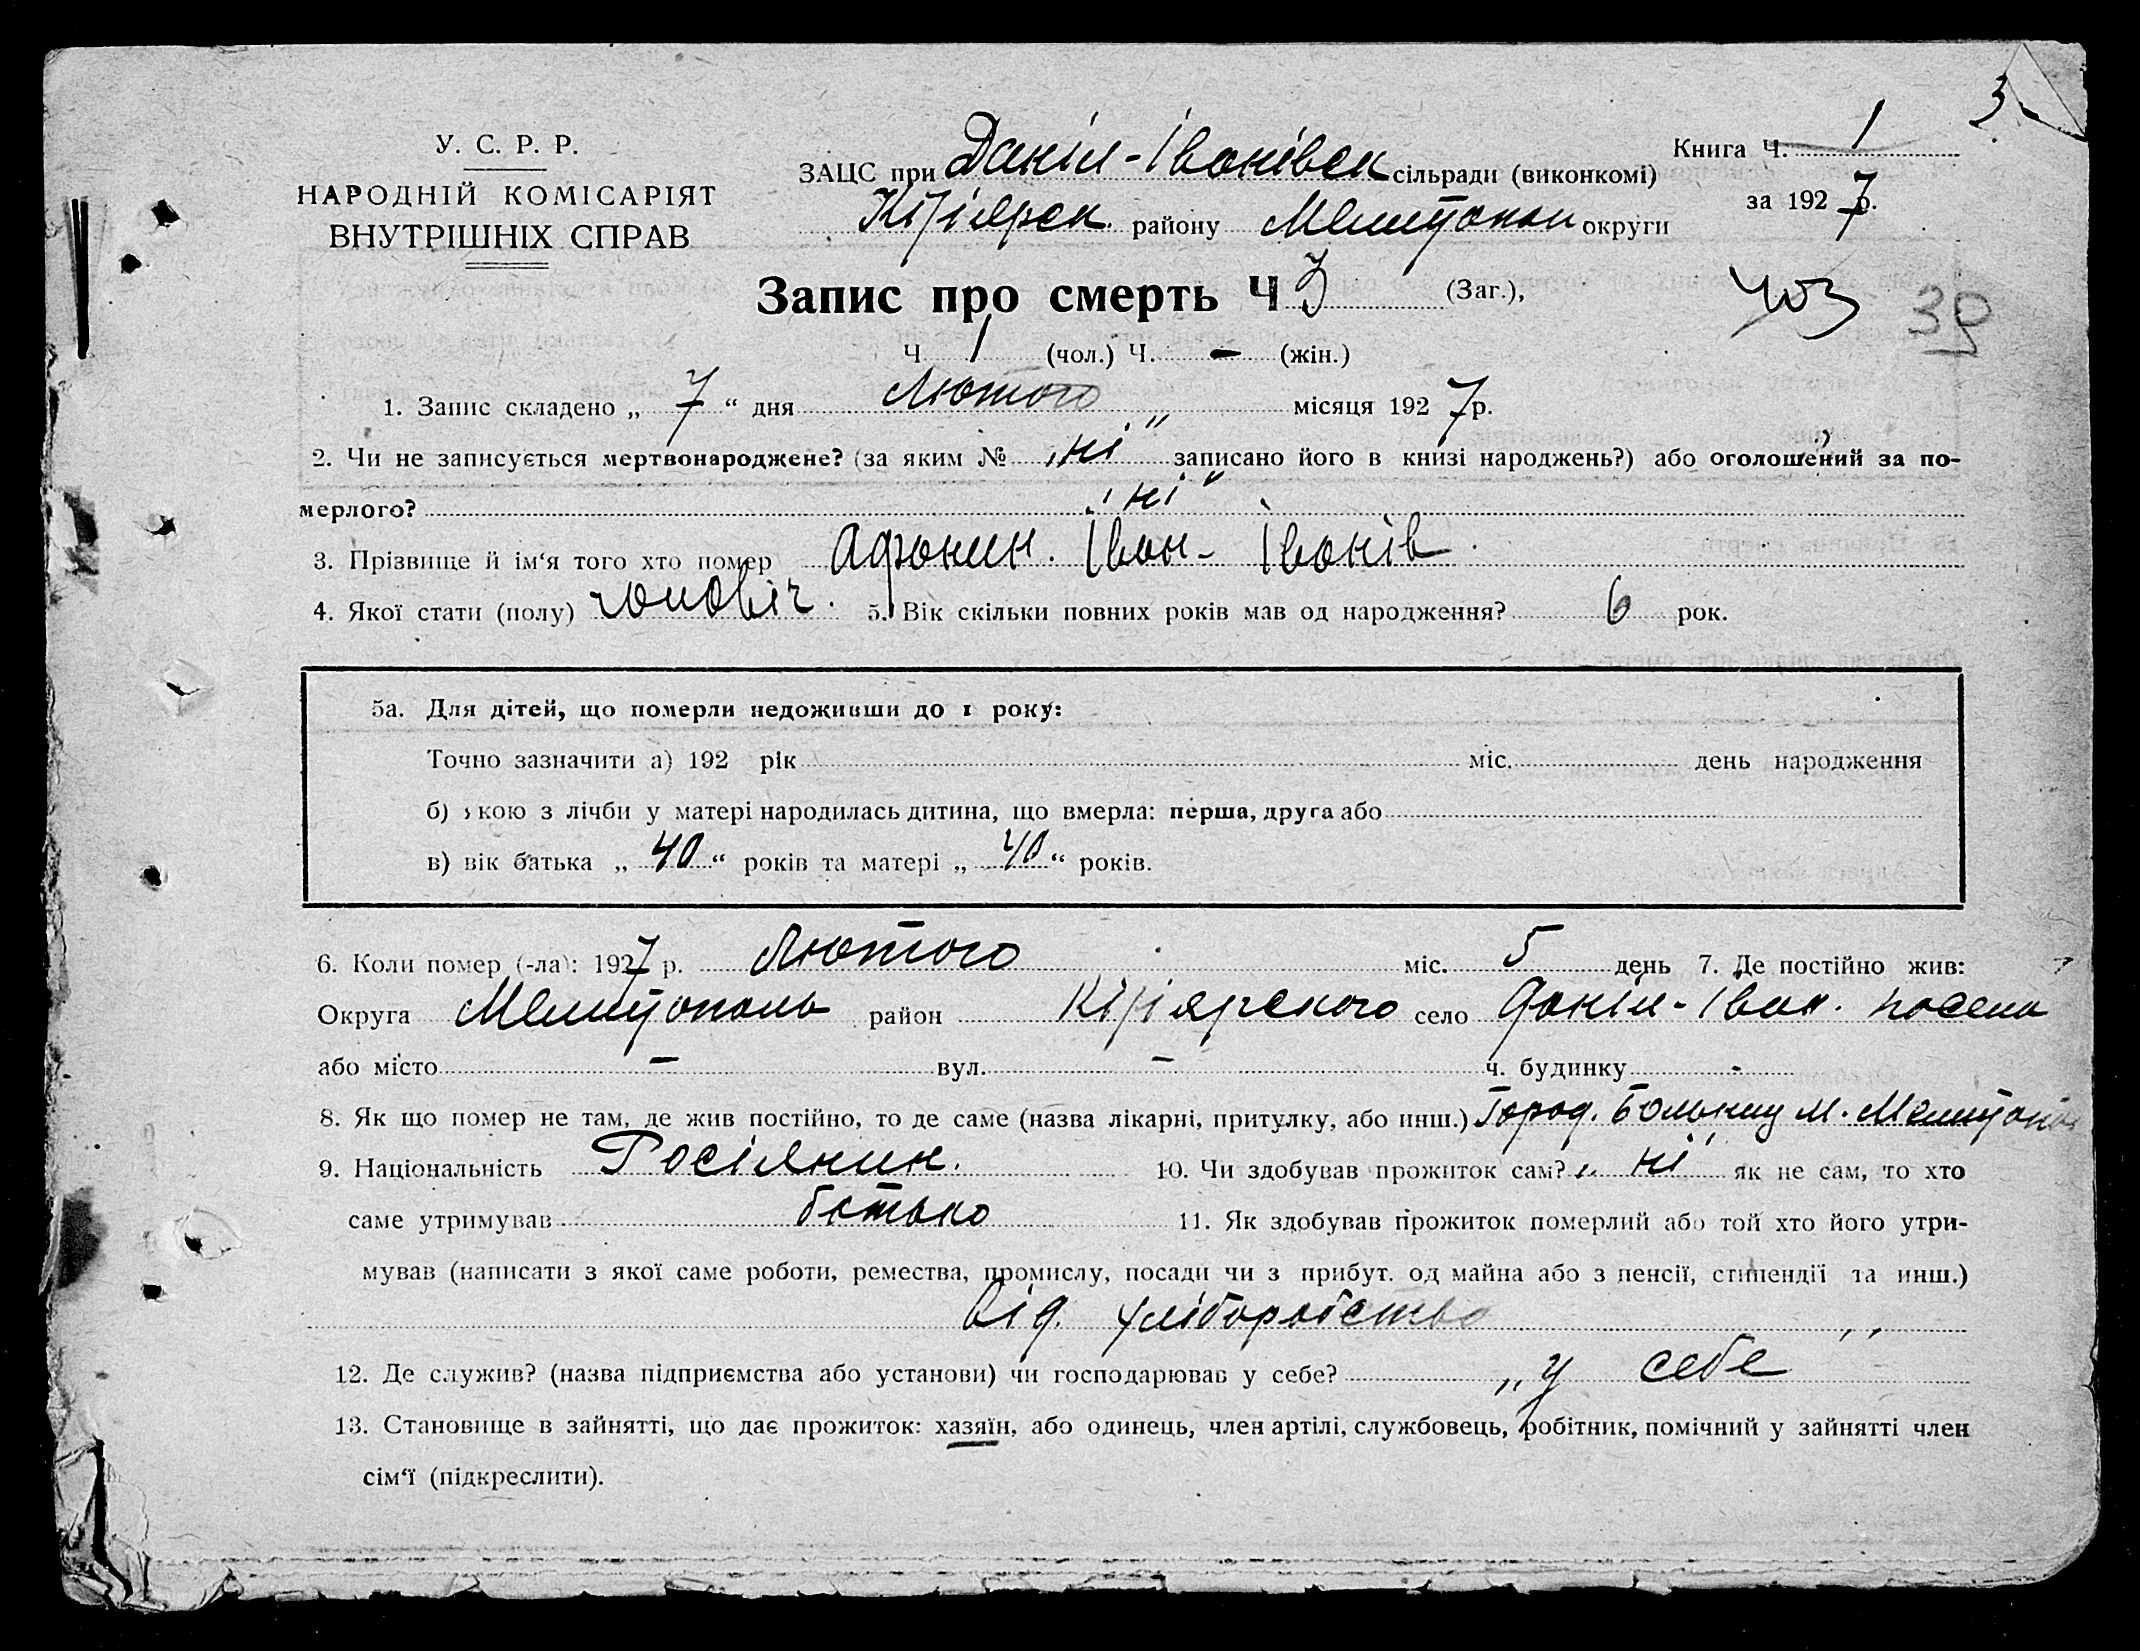 3
У. С. Р. Р.
НАРОДНІЙ КОМІСАРІЯТ
ВНУТРІШНІХ СПРАВ
ЗАЦС при Даніл-Іванівск сільради (виконкомі)
Кізіярск. району Мелитопол округи
Книга Ч. 1
за 1927 р.
Запис про смерть Ч 3 (Заг.),
403 39
Ч 1 (чол.) Ч. - (жін.)
1. Запис складено „ 7 “ дня Лютого місяця 1927 р.
2. Чи не записується мертвонароджене? (за яким № „ні“ записано його в книзі народжень?) або оголошений за по-
мерлого? „ні“
3. Прізвище й ім‘я того хто помер Афонин. Іван- Іванів.
4. Якої стати (полу) чоловіч. 5. Вік скільки повних років мав од народження? 6 рок.
5а. Для дітей, що померли недоживши до 1 року:
Точно зазначити а) 192 рік міс. день народження
б) якою з лічби у матері народилась дитина, що вмерла: перша, друга або
в) вік батька „ 40 “ років та матері „ 40 “ років.
6. Коли помер (-ла): 1927 р. Лютого міс. 5 день 7. Де постійно жив:
Округа Мелитополь район Кізіярского село Даніл-Іван.
або місто - вул. - ч. будинку -
8. Як що помер не там, де жив постійно, то де саме (назва лікарні, притулку, або инш.) Город. Больниц М. Мелитопол
9. Національність Росіянин. 10. Чи здобував прожиток сам? „ні“ як не сам, то хто
саме утримував батько 11. Як здобував прожиток померлий або той хто його утри-
мував (написати з якої саме роботи, ремества, промислу, посади чи з прибут. од майна або з пенсії, стипендії та инш.)
від. хліборобства
12. Де служив? (назва підприємства або установи) чи господарював у себе? „у себе“
13. Становище в зайнятті, що дає прожиток: хазяїн, або одинець, член артілі, службовець, робітник, помічний у зайнятті член
сім‘ї (підкреслити).